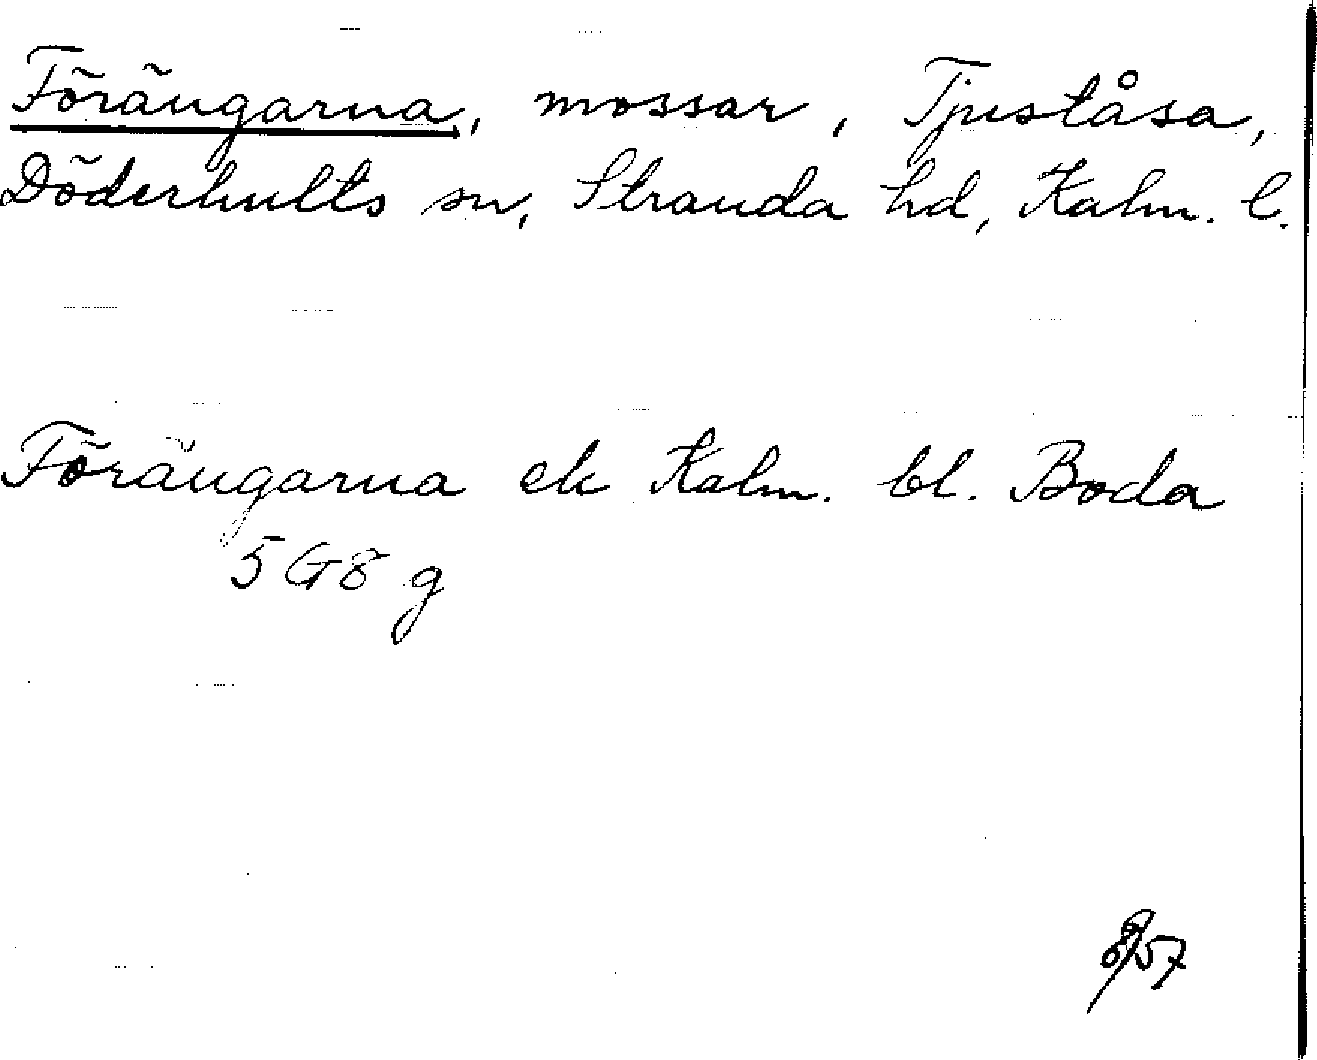 Förängarna, mossar, Tjuståsa,
Döderhults sn, Stranda hd, Kalm. l.
Förängarna ek Kalm. bl. Boda
5 G 8 g
57